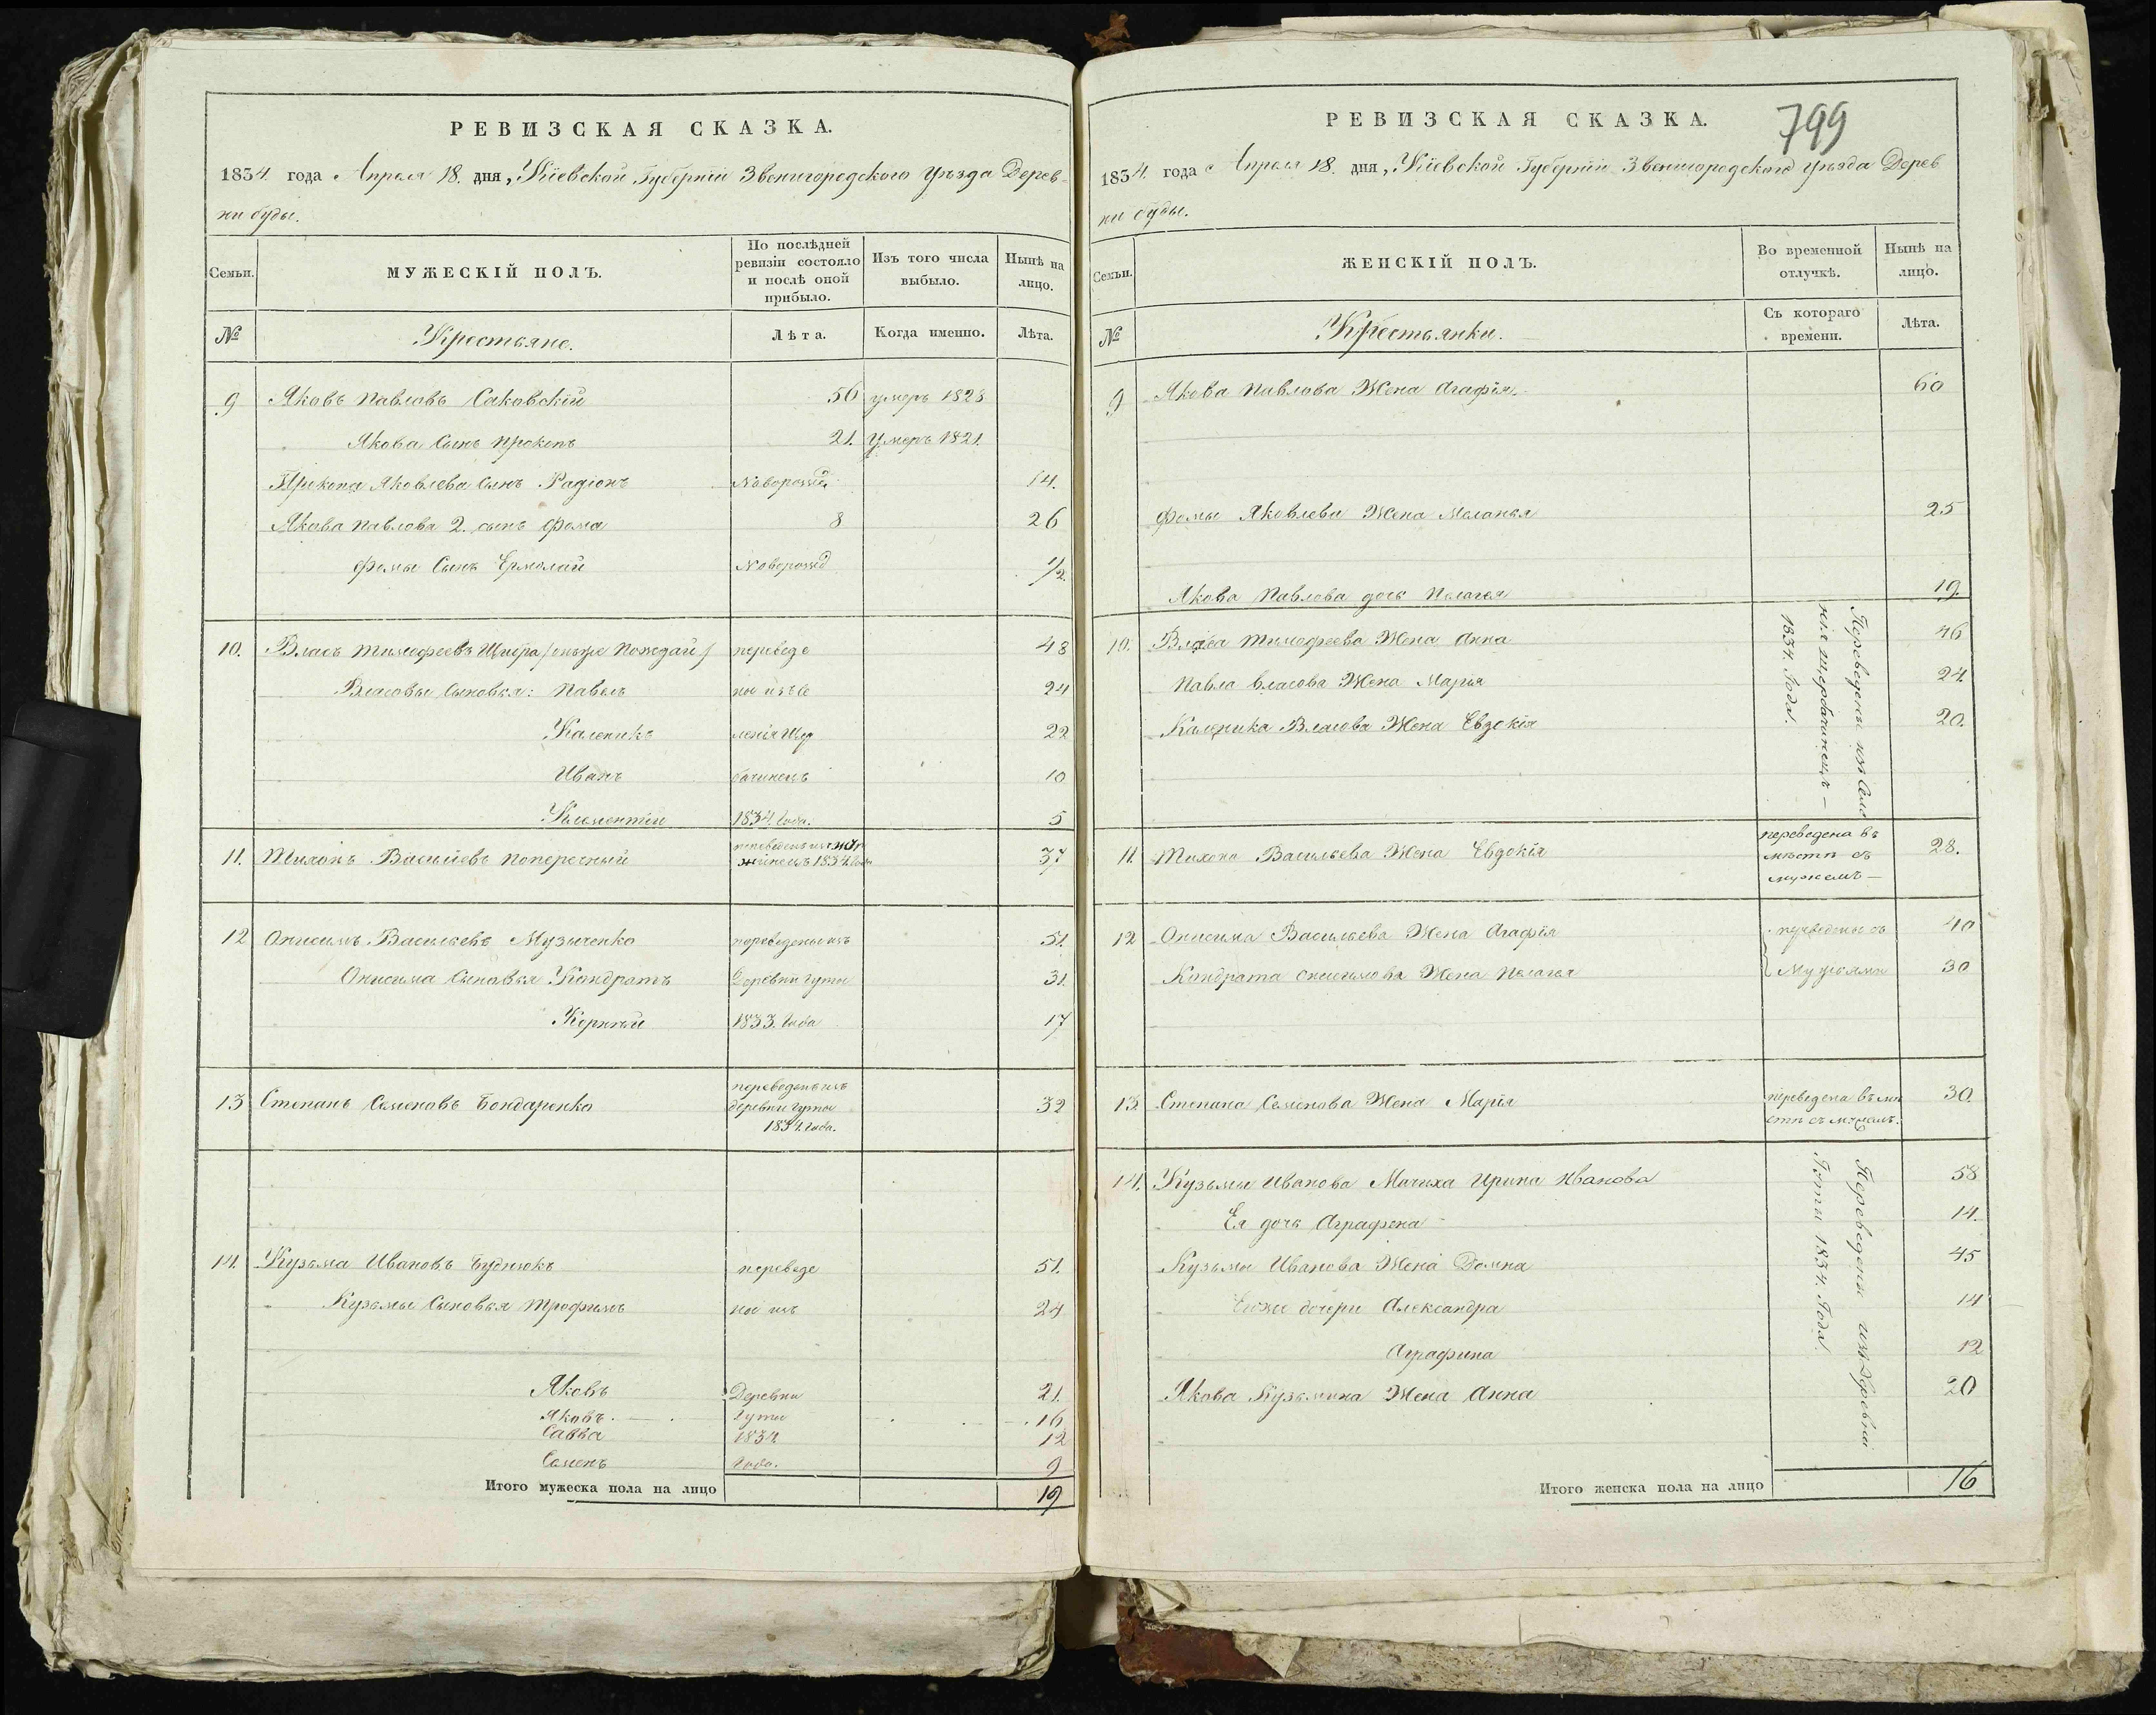 РЕВИЗСКАЯ СКАЗКА.
1834 года Апреля 18. дня, Кіевской Губерніи Звенигородского уѣзда Дерев-
ни буды.
Семьи. МУЖЕСКІЙ ПОЛЪ. По послѣдней ревизіи состояло и послѣ оной прибыло. Изъ того числа выбыло. Нынѣ на лицо.
№ Крестьяне. Лѣта. Когда именно. Лѣта.
9 Яковъ Павловъ Саковскій 56 умеръ 1828
Якова Сынъ Прокопъ 21. Умеръ 1821.
Прокопа Яковлева Сынъ Радіонъ 14.
Якова Павлова 2. сынъ Фома 8 26
Фомы Сынъ Ермолай 1/2
10. Власъ Тимофеевъ переведе 48
Власовы Сыновья: Павелъ ны изъ Се 24
Каленикъ ленія Щер 22
Иванъ бачинецъ 10
Клементій 1834. Года. 5
11. Тихонъ Васильевъ Поперечный 1834. 37
12 Онисимъ Васильевъ Музыченко переведены изъ 51.
Онисима Сыновья Кондратъ Деревни Гуты 31.
Корнѣй 1833. Года 17
13 Степанъ Семеновъ Бондаренко переведенъ изъ деревни Гуты 1834. Года. 32
14. Кузьма Ивановъ Буднюкъ переведе 51.
Кузьмы Сыновья Трофимъ ны изъ 24
Яковъ Деревни 21.
Яковъ Гуты 16
Савва 1834 12
Семенъ Года. 9
Итого мужеска пола на лицо 19
РЕВИЗСКАЯ СКАЗКА. 799
1834. года Апреля 18. дня, Кіевской Губерніи Звенигородского уѣзда Дерев
ни буды.
Семьи. ЖЕНСКІЙ ПОЛЪ. Во временной отлучкѣ. Нынѣ на лицо.
№ Крестьянки. Съ котораго времени. Лѣта.
9 Якова Павлова Жена Агафія 60
Фомы Яковлева Жена Меланья 25
Якова Павлова дочь Пелагея 19.
10. Власа Тимофеева Жена Анна 46
Павла Власова Жена Марья 24.
Каленика Власова Жена Евдокія 20.
Переведены изъ Селе
нія Щербачинецъ —
1834. Года.
11. Тихона Васильева Жена Евдокія переведена въ мѣсти съ мужемъ — 28.
12 Онисима Васильева Жена Агафія переведены съ 40
Кондрата Онисимова Жена Пелагея Мужьями 30
13. Степана Семенова Жена Марія переведена въ мѣ сти съ мужемъ. 30.
14. Кузьмы Иванова Мачиха Ирина Иванова 58
Ея дочь Аграфена 14.
Кузьмы Иванова Жена Домна 45
дочери Александра 14
Аграфина 12
Якова Кузьмина Жена Анна 20
Переведены изъ Деревни
Гуты 1834. Года
Итого женска пола на лицо 16